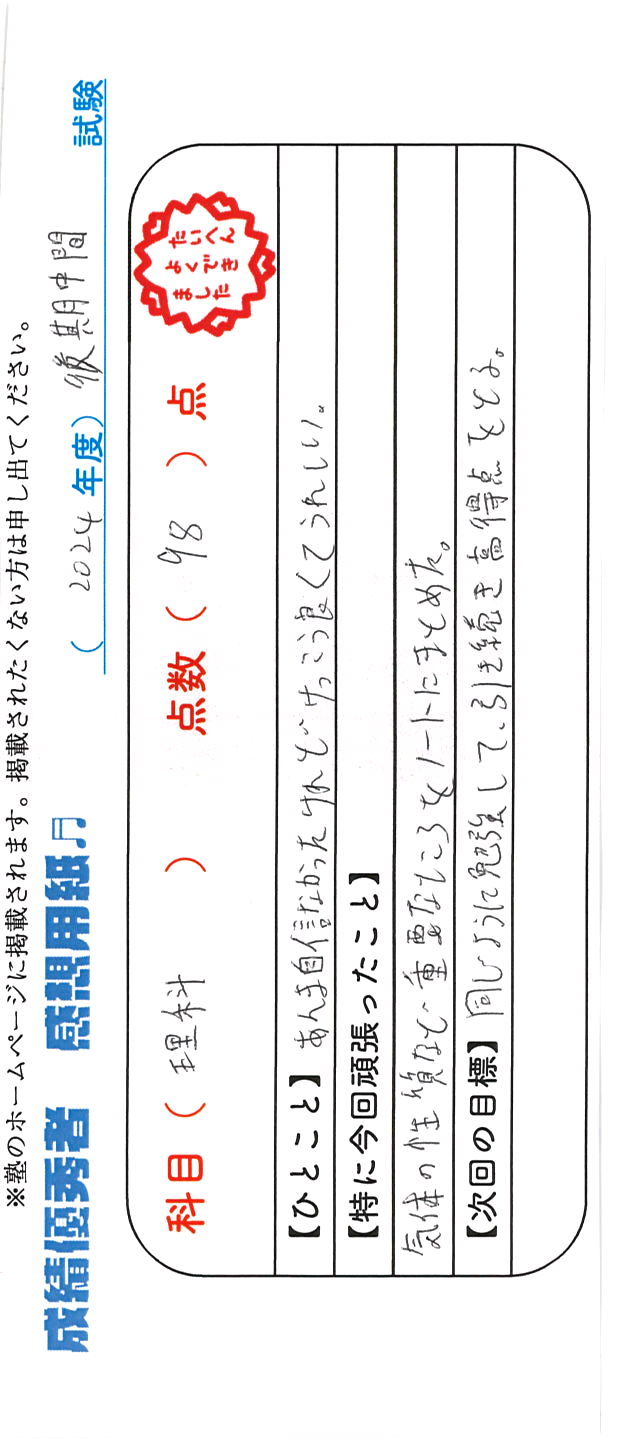 ※塾のホームページに掲載されます。掲載されたくない方は申し出てください。
成績優秀者 感想用紙♫ (2024年度)後期中間 試験
科目(理科) 点数(98)点
たいへん
よくでき
ました
【ひとこと】あんま自信なかったけれど、けっこう良くてうれしい。
【特に今回頑張ったこと】
気体の性質など、重要なところをノートにまとめた。
【次回の目標】同じように勉強して、引き続き高得点をとる。